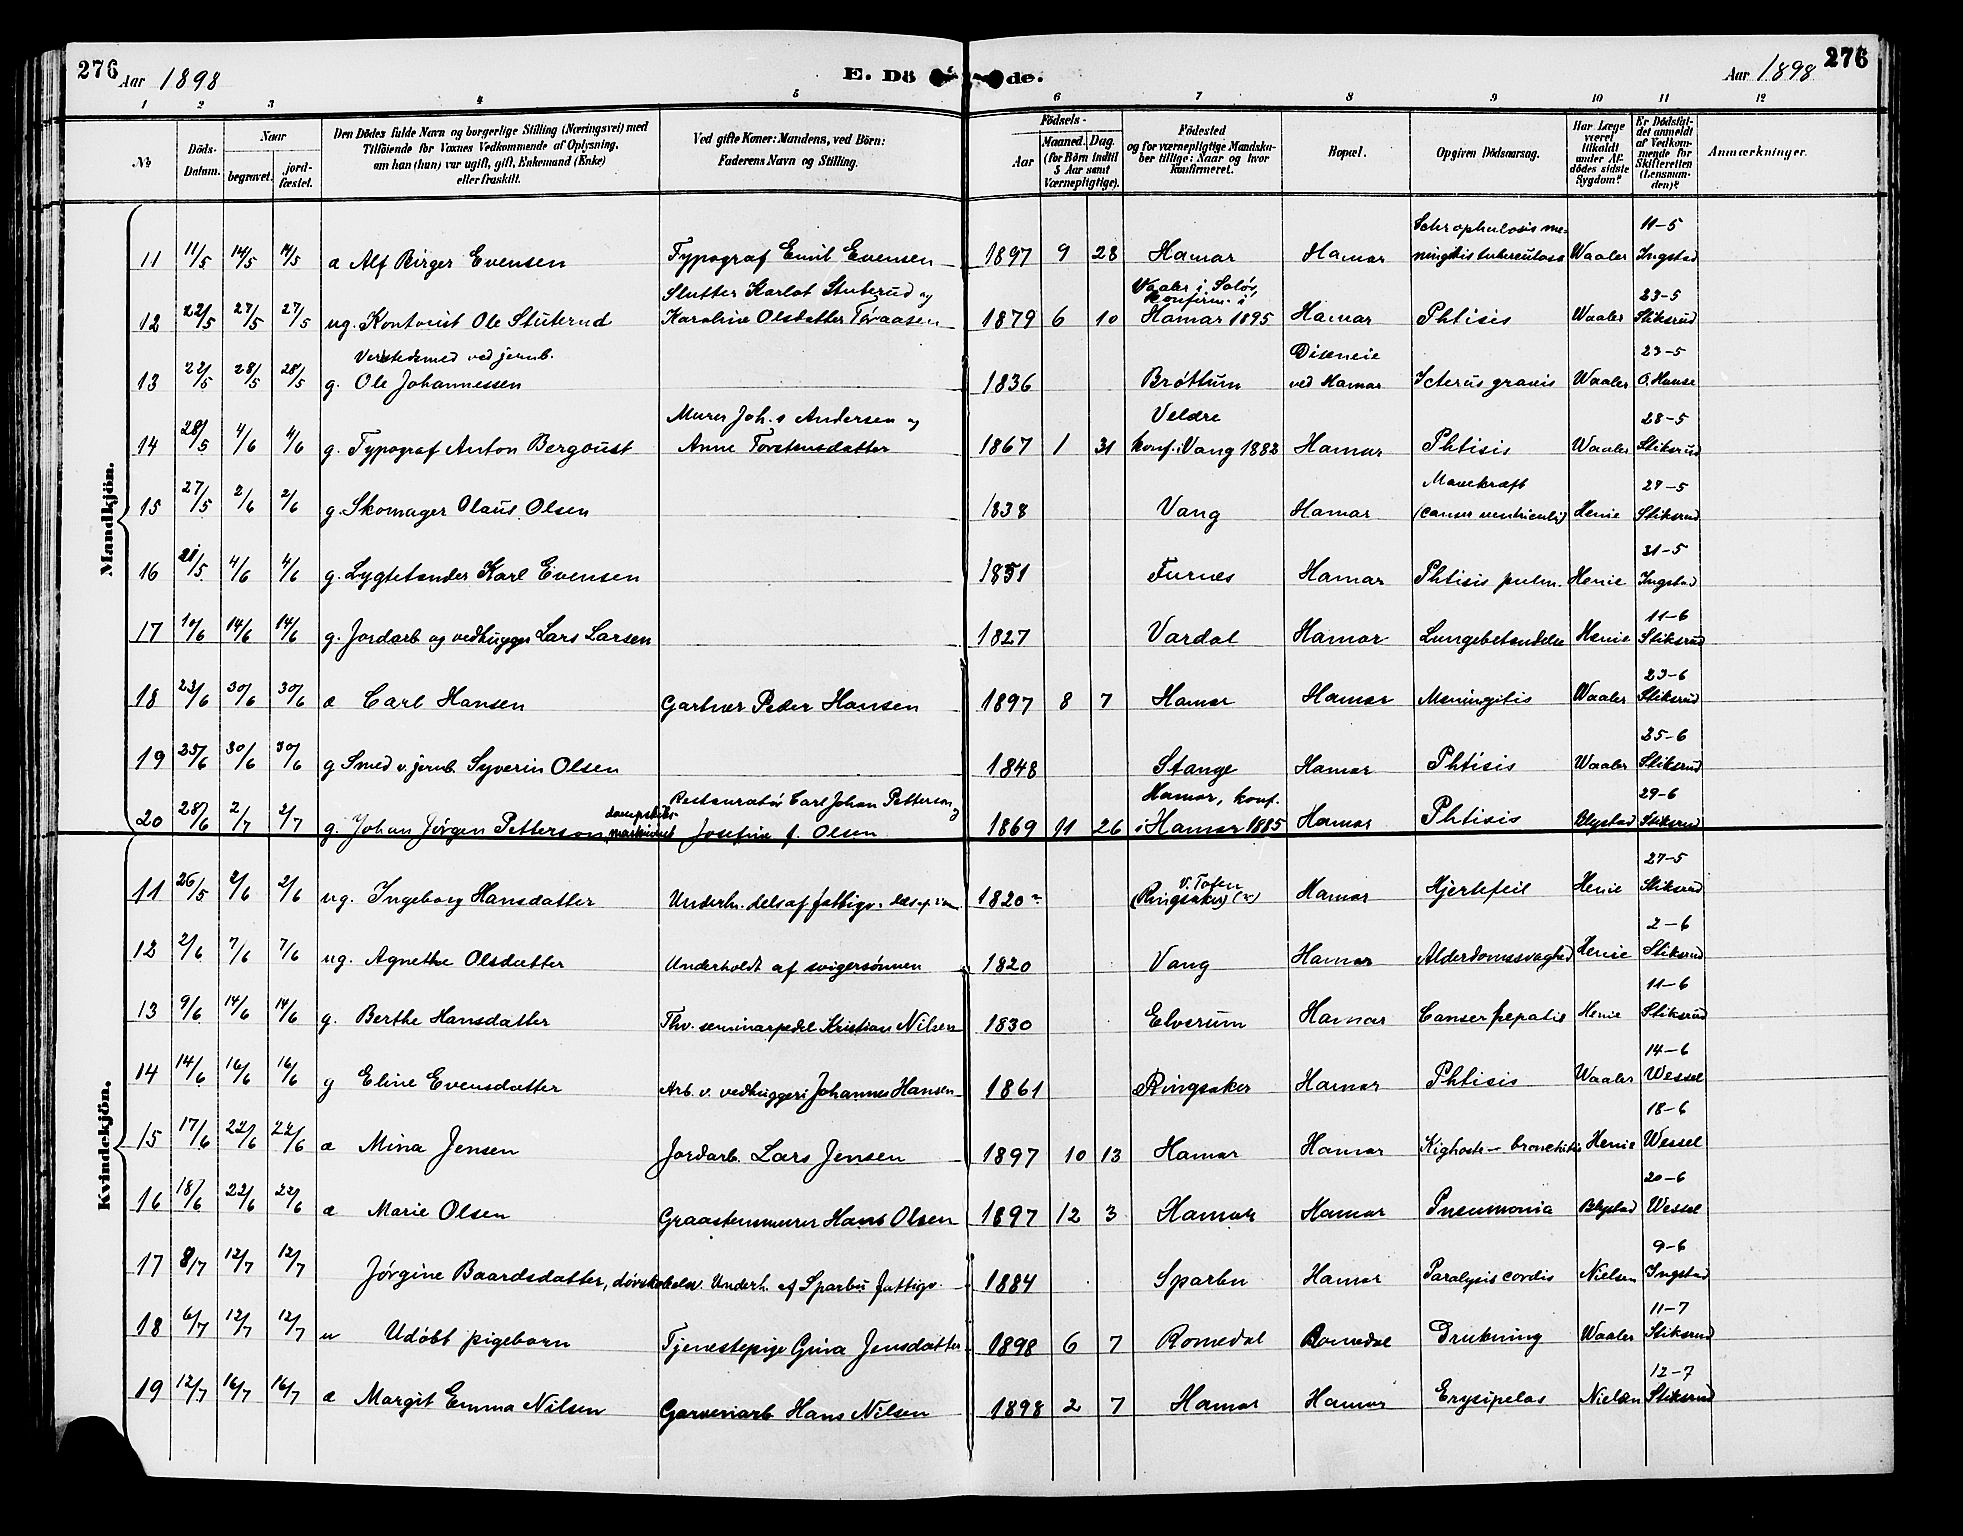 276 Aar 1898 E. Dö de. Aar 1898 276
1 2 3 4 5 6 7 8 9 10 11 12
№ Döds-Datum. Naar begravet. jord-fæstet. Den Dödes fulde Navn og borgerlige Stilling (Næringsvei) med Tilföiende for Voxnes Vedkommende af Oplysning, om han (hun) var ugift, gift, Enkemand (Enke) eller fraskilt. Ved gifte Koner: Mandens, ved Börn: Faderens Navn og Stilling. Födsels- Aar Maaned. Dag. (for Börn indtil 5 Aar samt Værnepligtige). Födested og for værnepligtige Mandskaber tillige: Naar og hvor konfirmeret. Bopæl. Opgiven Dödsaarsag. Har Læge været tilkaldt under Afdödes sidste Sygdom? Er Dödsfaldet anmeldt af Vedkommende for Skifteretten (Lensmanden)? Anmærkninger.
Mandkjön.
11 11/5 14/5 14/5 a Alf Birger Evensen Typograf Emil Evensen 1897 9 28 Hamar Hamar Schrophulosis meningitis tuberculosa Waaler 11-5 Ingstad
12 22/5 27/5 27/5 ug. Kontorist Ole Stuterud Slutter Karlot Stuterud og Karoline Olsdatter 1879 6 10 Vaaler i Solør, konfirm. i Hamar 1895 Hamar Phtisis Waaler 23-5 Stiksrud
13 22/5 28/5 28/5 g. Verkstedsmed ved jernb. Ole Johannessen 1836 Brøttum Diseneie ved Hamar Icterus gravis Waaler 23-5 O. Hanse
14 28/5 4/6 4/6 g. Typograf Anton Bergqvist Murer Joh.s Andersen og Anne Torstensdatter 1867 1 31 Veldre konf. i Vang 1882 Hamar Phtisis Waaler 28-5 Stiksrud
15 27/5 2/6 2/6 g. Skomager Olaus Olsen 1838 Vang Hamar Mavekræft (Canser ventriculi) Henie 27-5 Stiksrud
16 4/6 4/6 g. Lygtetænder Karl Evensen 1851 Furnes Hamar Phtisis pulm. Henie 31-5 Ingstad
17 10/6 14/6 14/6 g. Jordarb og vedhugger Lars Larsen 1827 Vardal Hamar Lungebetændelse Henie 11-6 Stiksrud
18 23/6 30/6 30/6 a Carl Hansen Gartner Peder Hansen 1897 8 7 Hamar Hamar Meningitis Waaler 23-6 Stiksrud
19 25/6 30/6 30/6 g Smed v. jernb. Syverin Olsen 1848 Stange Hamar Phtisis Waaler 25-6 Stiksrud
20 28/6 2/7 2/7 g. Johan Jørgen Petterson, Restauratør Carl Johan Petterson og Josefine f. Olsen 1869 11 26 Hamar, konf. i Hamar 1885 Hamar Phtisis Blystad 29-6 Stiksrud
Kvindekjön.
11 26/5 2/6 2/6 ug. Ingeborg Hansdatter Underh. dels af fattigv. 1820 V. Toten (Ringsaker) Hamar Hjertefeil Henie 27-5 Stiksrud
12 2/6 7/6 7/6 ug. Agnethe Olsdatter Underholdt af svigersønnen 1820 Vang Hamar Alderdomssvaghed Henie 2-6 Stiksrud
13 9/6 14/6 14/6 g. Berthe Hansdatter Fhv. seminarpedel Kristian Nilsen 1830 Elverum Hamar Canser hepatis Henie 11-6 Stiksrud
14 14/6 16/6 16/6 g Eline Evensdatter Arb. v. vedhuggeri Johannes Hansen 1861 Ringsaker Hamar Phtisis Waaler 14-6 Wessel
15 17/6 22/6 22/6 a Mina Jensen Jordarb. Lars Jensen 1897 10 13 Hamar Hamar Kighoste - bronchitis Henie 18-6 Wessel
16 18/6 22/6 22/6 a Marie Olsen Graastensmurer Hans Olsen 1897 12 3 Hamar Hamar Pneumonia Blystad 20-6 Wessel
17 8/7 12/7 12/7 Jørgine Baardsdatter, døvskoleelev. Underh. af Sparbu fattigv. 1884 Sparbu Hamar Paralysis cordis Nielsen 9-6 Ingstad
18 6/7 12/7 12/7 u Udøbt pigebarn Tjenestepige Gina Jensdatter 1898 6 7 Romedal Romedal Drukning Waaler 11-7 Stiksrud
19 12/7 16/7 16/7 a Margit Emma Nilsen Garveriarb Hans Nilsen 1898 2 7 Hamar Hamar Erysipelas Nielsen 12-7 Stiksrud